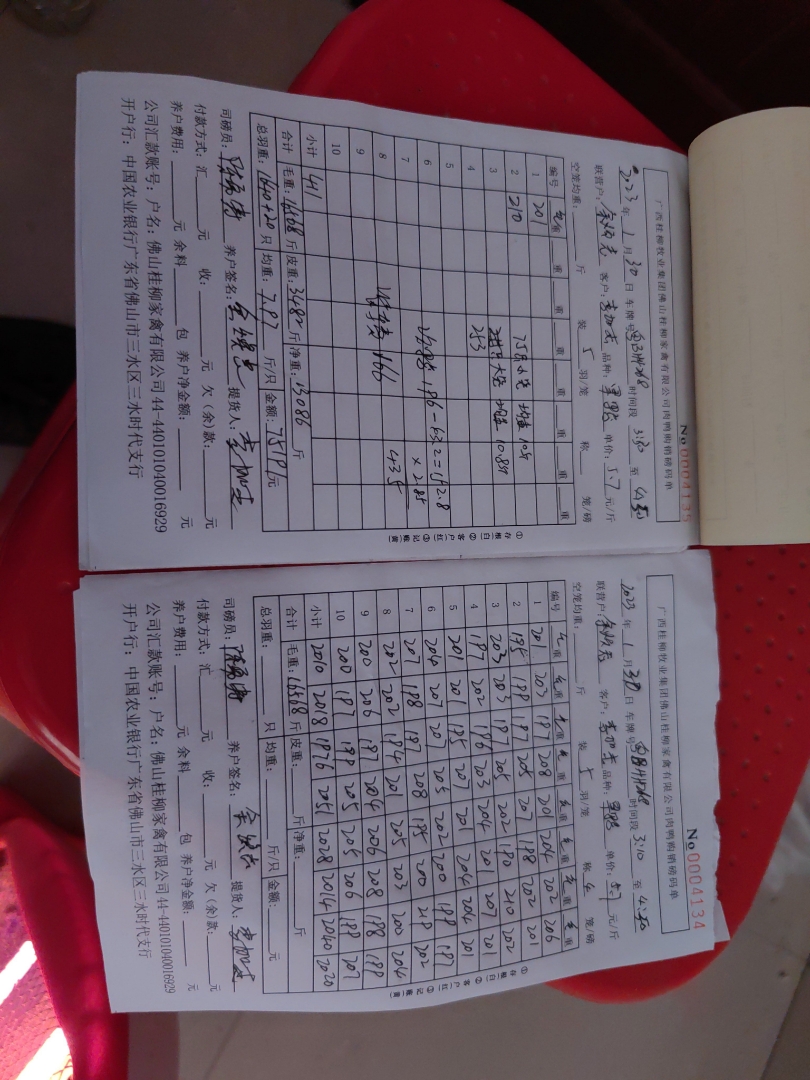 广西桂柳牧业集团佛山桂柳家禽有限公司肉鸭购销磅码单
No 0004135
2023 年 1 月 30 日 车牌号 时间段 3:30 至
联营户: 客户: 品种: 单价: 5.7 元/斤
空笼均重: 斤 装 5 羽/笼 称 笼/磅
编号 毛重 重 重 重 重 重 重 重
1 201
2 210 75只小笼 均重 10斤
3 大笼 均重 10.8斤
4 253
5
6 196-63.2=152.8
7 ×2.85
8 166 435
9
10
小计 411
合计 毛重: 16568 斤 皮重: 3482 斤 净重: 13086 斤
总羽重: 1640+20 只 均重: 7.87 斤/只 金额: 75191 元
司磅员: 养户签名: 提货人:
付款方式: 汇 元 收: 元 欠(余)款: 元
养户费用: 元 余料 包 养户净金额: 元
公司汇款账号: 户名: 佛山桂柳家禽有限公司 44-440101040016929
开户行: 中国农业银行广东省佛山市三水区三水时代支行
①存根(白) ②客户(红) ③记账(黄)
广西桂柳牧业集团佛山桂柳家禽有限公司肉鸭购销磅码单
No 0004134
2023 年 1 月 30 日 车牌号 时间段 3:10 至 4:30
联营户: 客户: 品种: 单价: 5.7 元/斤
空笼均重: 斤 装 5 羽/笼 称 4 笼/磅
编号 毛重 毛重 毛重 毛重 毛重 毛重 毛重 毛重
1 201 203 197 208 201 204 202 206
2 195 199 197 205 207 198 202 201
3 203 203 197 205 202 190 210 202
4 197 202 196 203 204 201 207 201
5 201 201 195 207 201 204 204 201
6 204 207 207 205 202 200 199 197
7 207 198 197 208 195 200 218 202
8 202 202 194 201 205 203 200 204
9 200 206 197 204 206 208 198 199
10 200 197 199 205 205 206 199 207
小计 2010 2018 1976 2051 2028 2014 2040 2020
合计 毛重: 16568 斤 皮重: 斤 净重: 斤
总羽重: 只 均重: 斤/只 金额: 元
司磅员: 养户签名: 提货人:
付款方式: 汇 元 收: 元 欠(余)款: 元
养户费用: 元 余料 包 养户净金额: 元
公司汇款账号: 户名: 佛山桂柳家禽有限公司 44-440101040016929
开户行: 中国农业银行广东省佛山市三水区三水时代支行
①存根(白) ②客户(红) ③记账(黄)